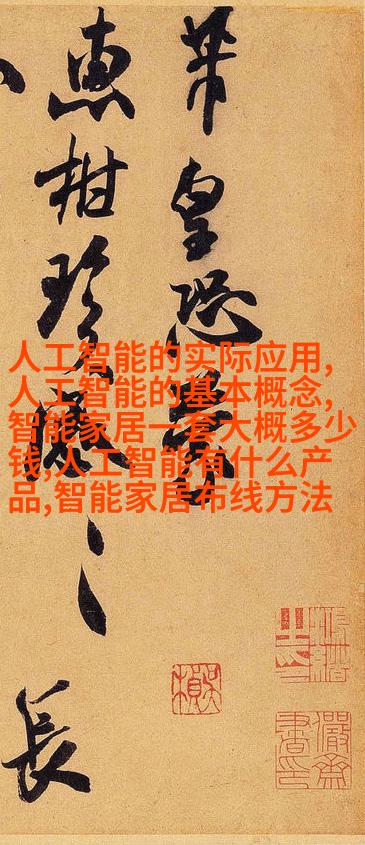 芾皇恐蒙
惠柑珍感〻
長
人工智能的实际应用,
人工智能的基本概念,
智能家居一套大概多少
钱,人工智能有什么产
品,智能家居布线方法